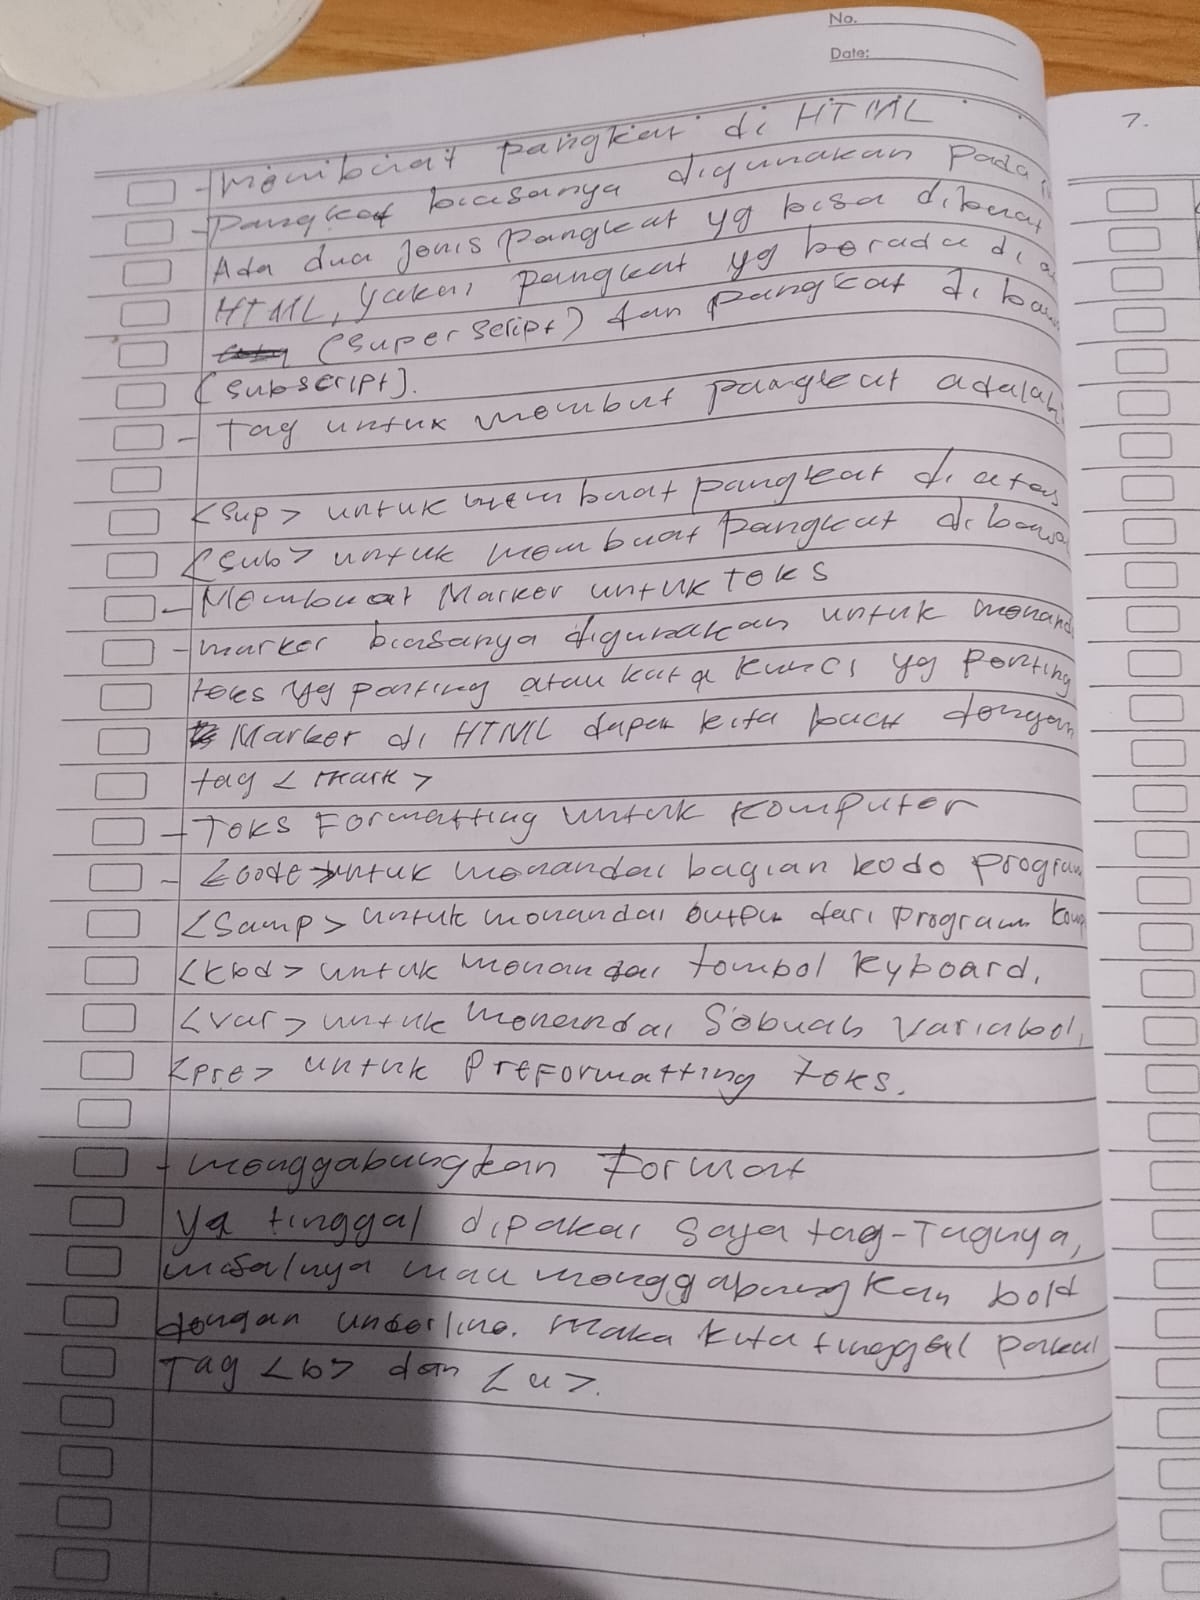 No.
Date:
7.
- Membuat pangkat di HTML
- Pangkat biasanya digunakan pada
Ada dua jenis pangkat yg bisa dibuat
HTML, yakni pangkat yg berada di a
(superscript) dan pangkat di baw
(subscript).
- Tag untuk membut pangkat adalah
<sup> untuk membuat pangkat di atas
<sub> untuk membuat pangkat dibawa
- Membuat Marker untuk teks
- marker biasanya digunakan untuk menand
teks yg penting atau kata kunci yg penting
Marker di HTML dapat kita buat dengan
tag <mark>
- Teks Formatting untuk komputer
- <code> untuk menandai bagian kode program
<samp> untuk menandai output dari program komp
<kbd> untuk menandai tombol keyboard.
<var> untuk menandai sebuah variabel,
<pre> untuk PreFormatting teks.
- menggabungkan Format
Ya tinggal dipakai saja tag-Tagnya,
misalnya mau menggabungkan bold
dengan underline. Maka kita tinggal pakai
Tag <b> dan <u>.